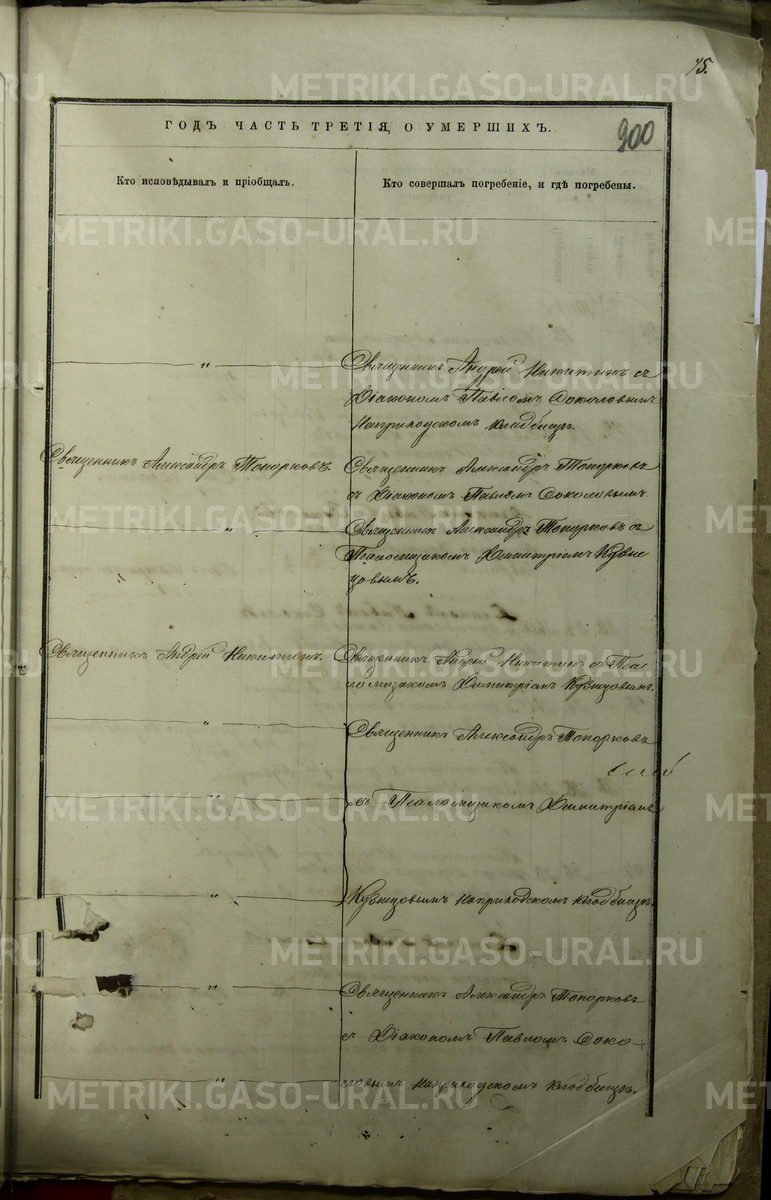 75.
ГОДЪ ЧАСТЬ ТРЕТІЯ, О УМЕРШИХЪ.
900
Кто исповѣдывалъ и пріобщалъ.
Кто совершалъ погребеніе, и гдѣ погребены.
„
Священникъ Андрей Никитинъ съ
Діакономъ Павломъ Соколовымъ
наприходскомъ кладбищѣ.
Священникъ Александръ Топорковъ.
Священникъ Александръ Топорковъ
съ Діакономъ Павломъ Соколовымъ.
„
Священникъ Александръ Топорковъ съ
Псаломщикомъ Димитріемъ Кузне
цовымъ.
Священникъ Андрей Никитинъ.
Священникъ Андрей Никитинъ съ Пса
ломщикомъ Димитріемъ Кузнецовымъ.
„
Священникъ Александръ Топорковъ
„
съ Псаломщикомъ Димитріемъ
„
Кузнецовымъ наприходскомъ кладбищѣ.
„
Священникъ Александръ Топорковъ
съ Діакономъ Павломъ Соко-
„
ловымъ наприходскомъ кладбищѣ.
METRIKI.GASO-URAL.RU